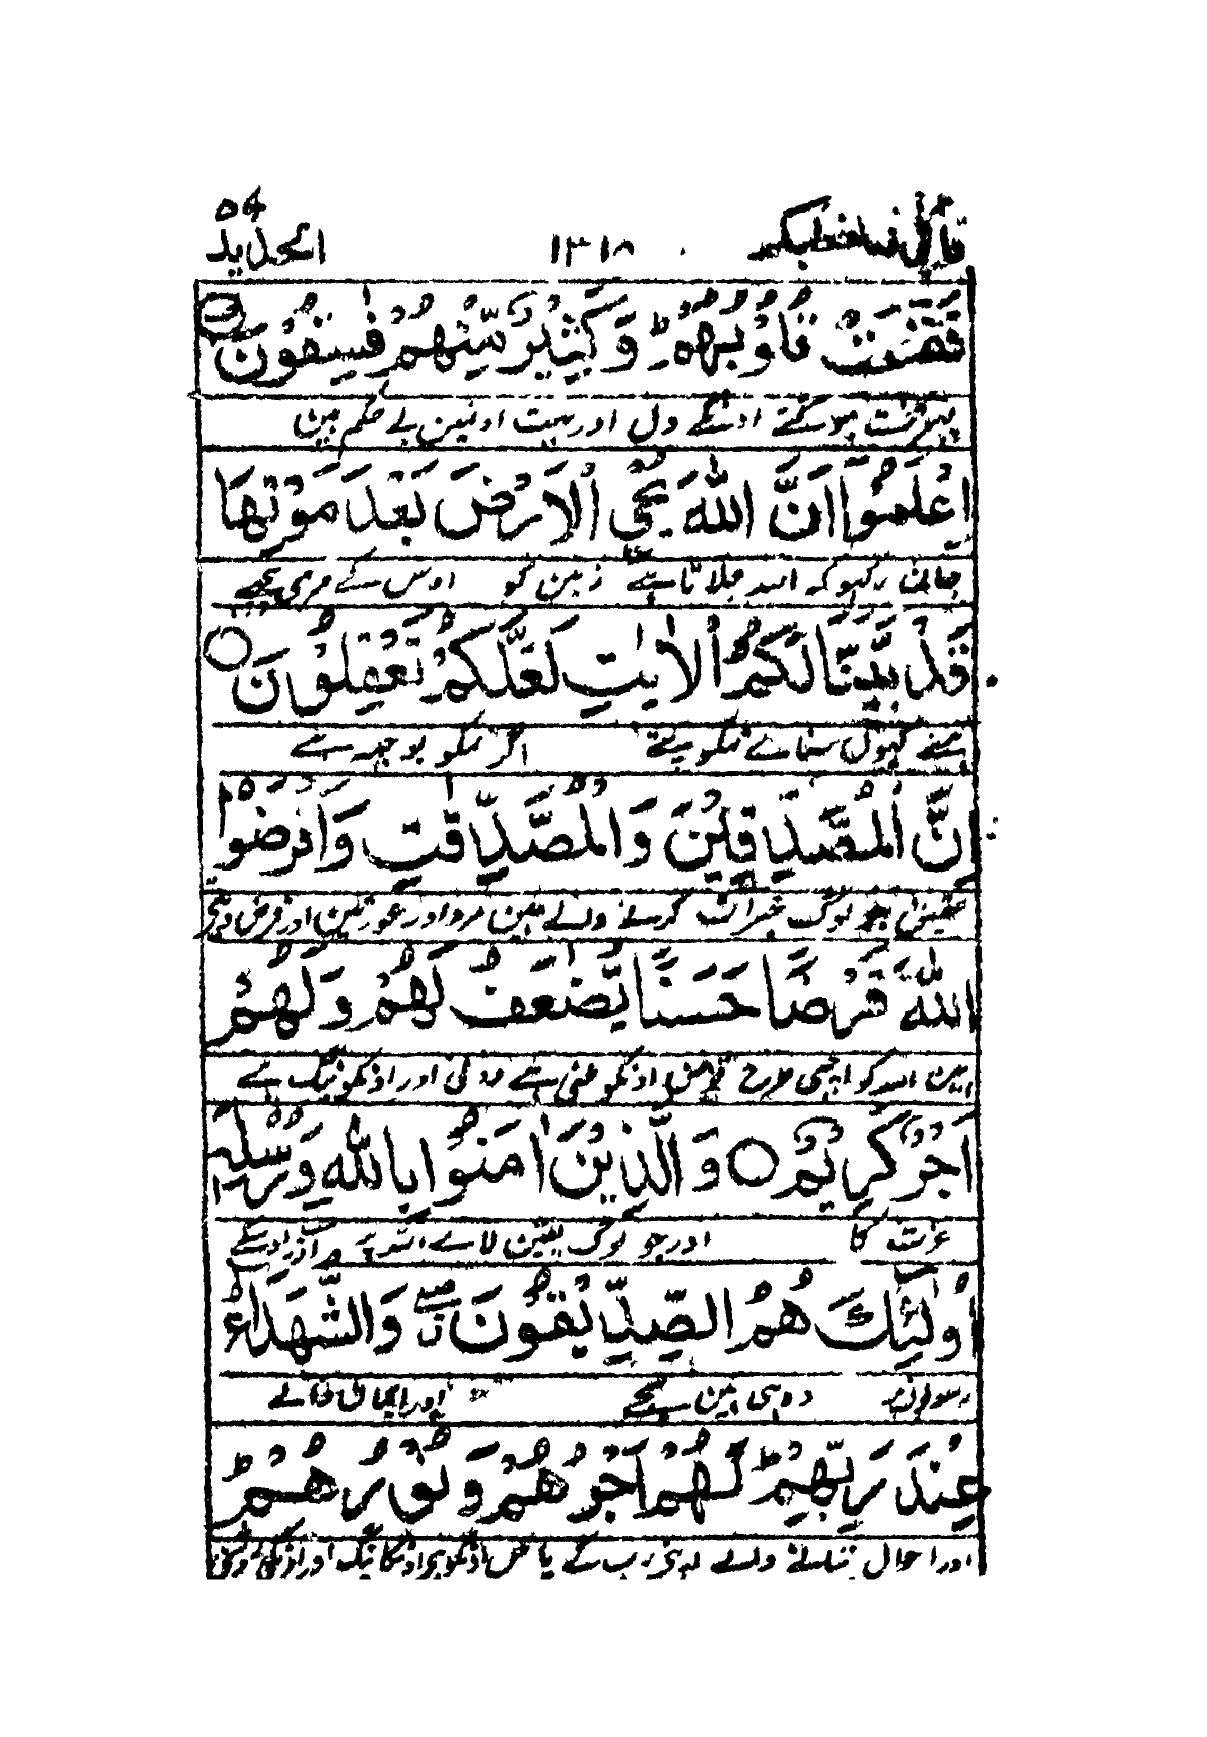 قال فما خطبكم ١٣١٨ الحديد ٥٧
فَقَسَتْ قُلُوْبُهُمْ ؕ وَ كَثِيْرٌ مِّنْهُمْ فٰسِقُوْنَ
پھر سخت ہو گئے اونکے دل اور بہت اونمین بے حکم ہین
اِعْلَمُوْۤا اَنَّ اللّٰهَ يُحْيِ الْاَرْضَ بَعْدَ مَوْتِهَا
جان رکہو کہ اسد جلاتا ہے زمین کو اوس کے مری پیچھے
قَدْ بَيَّنَّا لَكُمُ الْاٰيٰتِ لَعَلَّكُمْ تَعْقِلُوْنَ ○
ہمنے کہول سنائے تمکو پتے اگر تمکو بوجہہ ہے
اِنَّ الْمُصَّدِّقِيْنَ وَ الْمُصَّدِّقٰتِ وَ اَقْرَضُوا
تحقیق جو لوگ خیرات کرنے والے ہین مرد اور عورتین اور قرض دیتے
اللّٰهَ قَرْضًا حَسَنًا يُّضٰعَفُ لَهُمْ وَ لَهُمْ
ہین اسد کو اچھی طرح قرض اونکو ملتی ہے دونی اور اونکو نیگ ہے
اَجْرٌ كَرِيْمٌ ○ وَ الَّذِيْنَ اٰمَنُوْا بِاللّٰهِ وَ رُسُلِهٖۤ
عزت کا اور جو لوگ یقین لائے اسد پر اور اوسکے
اُولٰٓئِكَ هُمُ الصِّدِّيْقُوْنَ ۖ وَ الشُّهَدَآءُ
رسولون پر وہی ہین سچے اور
عِنْدَ رَبِّهِمْ ؕ لَهُمْ اَجْرُهُمْ وَ نُوْرُهُمْ ؕ
اور احوال بتانے والے اپنے رب کے پاس اونکو ہی اونکا نیگ اور اونکی روشنی